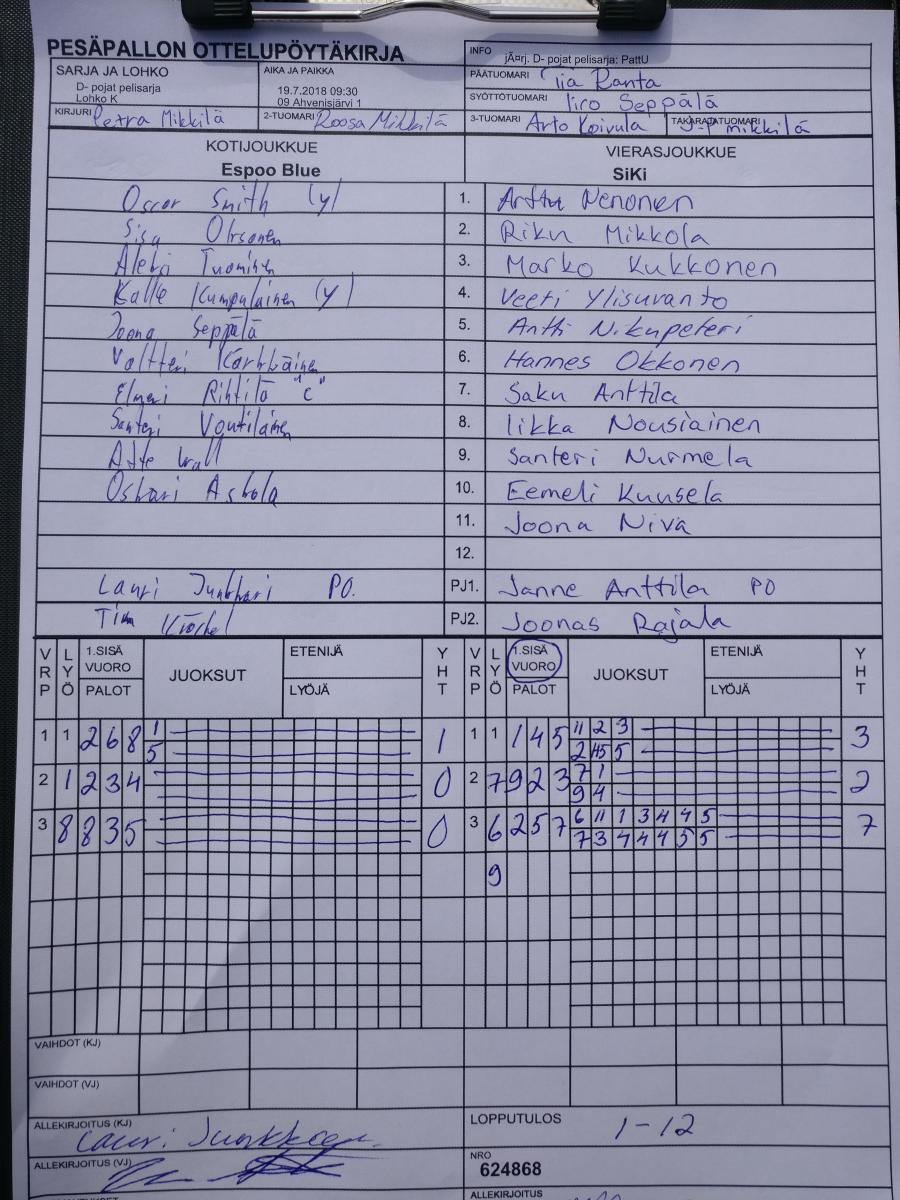 PESÄPALLON OTTELUPÖYTÄKIRJA
INFO
jÃ¤rj. D- pojat pelisarja: PattU
SARJA JA LOHKO
D- pojat pelisarja
Lohko K
AIKA JA PAIKKA
19.7.2018 09:30
09 Ahvenisjärvi 1
PÄÄTUOMARI Tiia Ranta
SYÖTTÖTUOMARI Iiro Seppälä
KIRJURI Petra Mikkilä
2-TUOMARI Roosa Mikkilä
3-TUOMARI Arto Koivula
TAKARAJATUOMARI J-P Mikkilä
KOTIJOUKKUE
Espoo Blue
VIERASJOUKKUE
SiKi
Oscar Smith (y) 1. Arttu Nenonen
Sisu 2. Riku Mikkola
Aleksi Tuominen 3. Marko Kukkonen
Kalle Kumpulainen (y) 4. Veeti Ylisuvanto
Joona Seppälä 5. Antti Nikupeteri
Valtteri Karhkainen 6. Hannes Okkonen
Elmeri Rihtilä "c" 7. Saku Anttila
Santeri Voutilainen 8. Iikka Nousiainen
Atte Wall 9. Santeri Nurmela
Oskari Askola 10. Eemeli Kuusela
11. Joona Niva
12.
Lauri Junkkari PO. PJ1. Janne Anttila PO
Tim PJ2. Joonas Rajala
VRP LYÖ 1.SISÄ VUORO PALOT JUOKSUT ETENIJÄ LYÖJÄ YHT VRP LYÖ 1.SISÄ VUORO PALOT JUOKSUT ETENIJÄ LYÖJÄ YHT
1 1 2 6 8 1 1 1 1 1 4 5 11 2 3 3
5 2 5
2 1 2 3 4 0 2 7 9 2 3 7 1 2
9 4
3 8 8 3 5 0 3 6 2 5 7 6 11 1 3 4 4 5 7
7 3 4 4 4 5 5
9
VAIHDOT (KJ)
VAIHDOT (VJ)
ALLEKIRJOITUS (KJ) Lauri Junkkari
LOPPUTULOS 1-12
ALLEKIRJOITUS (VJ)
NRO
624868
ALLEKIRJOITUS